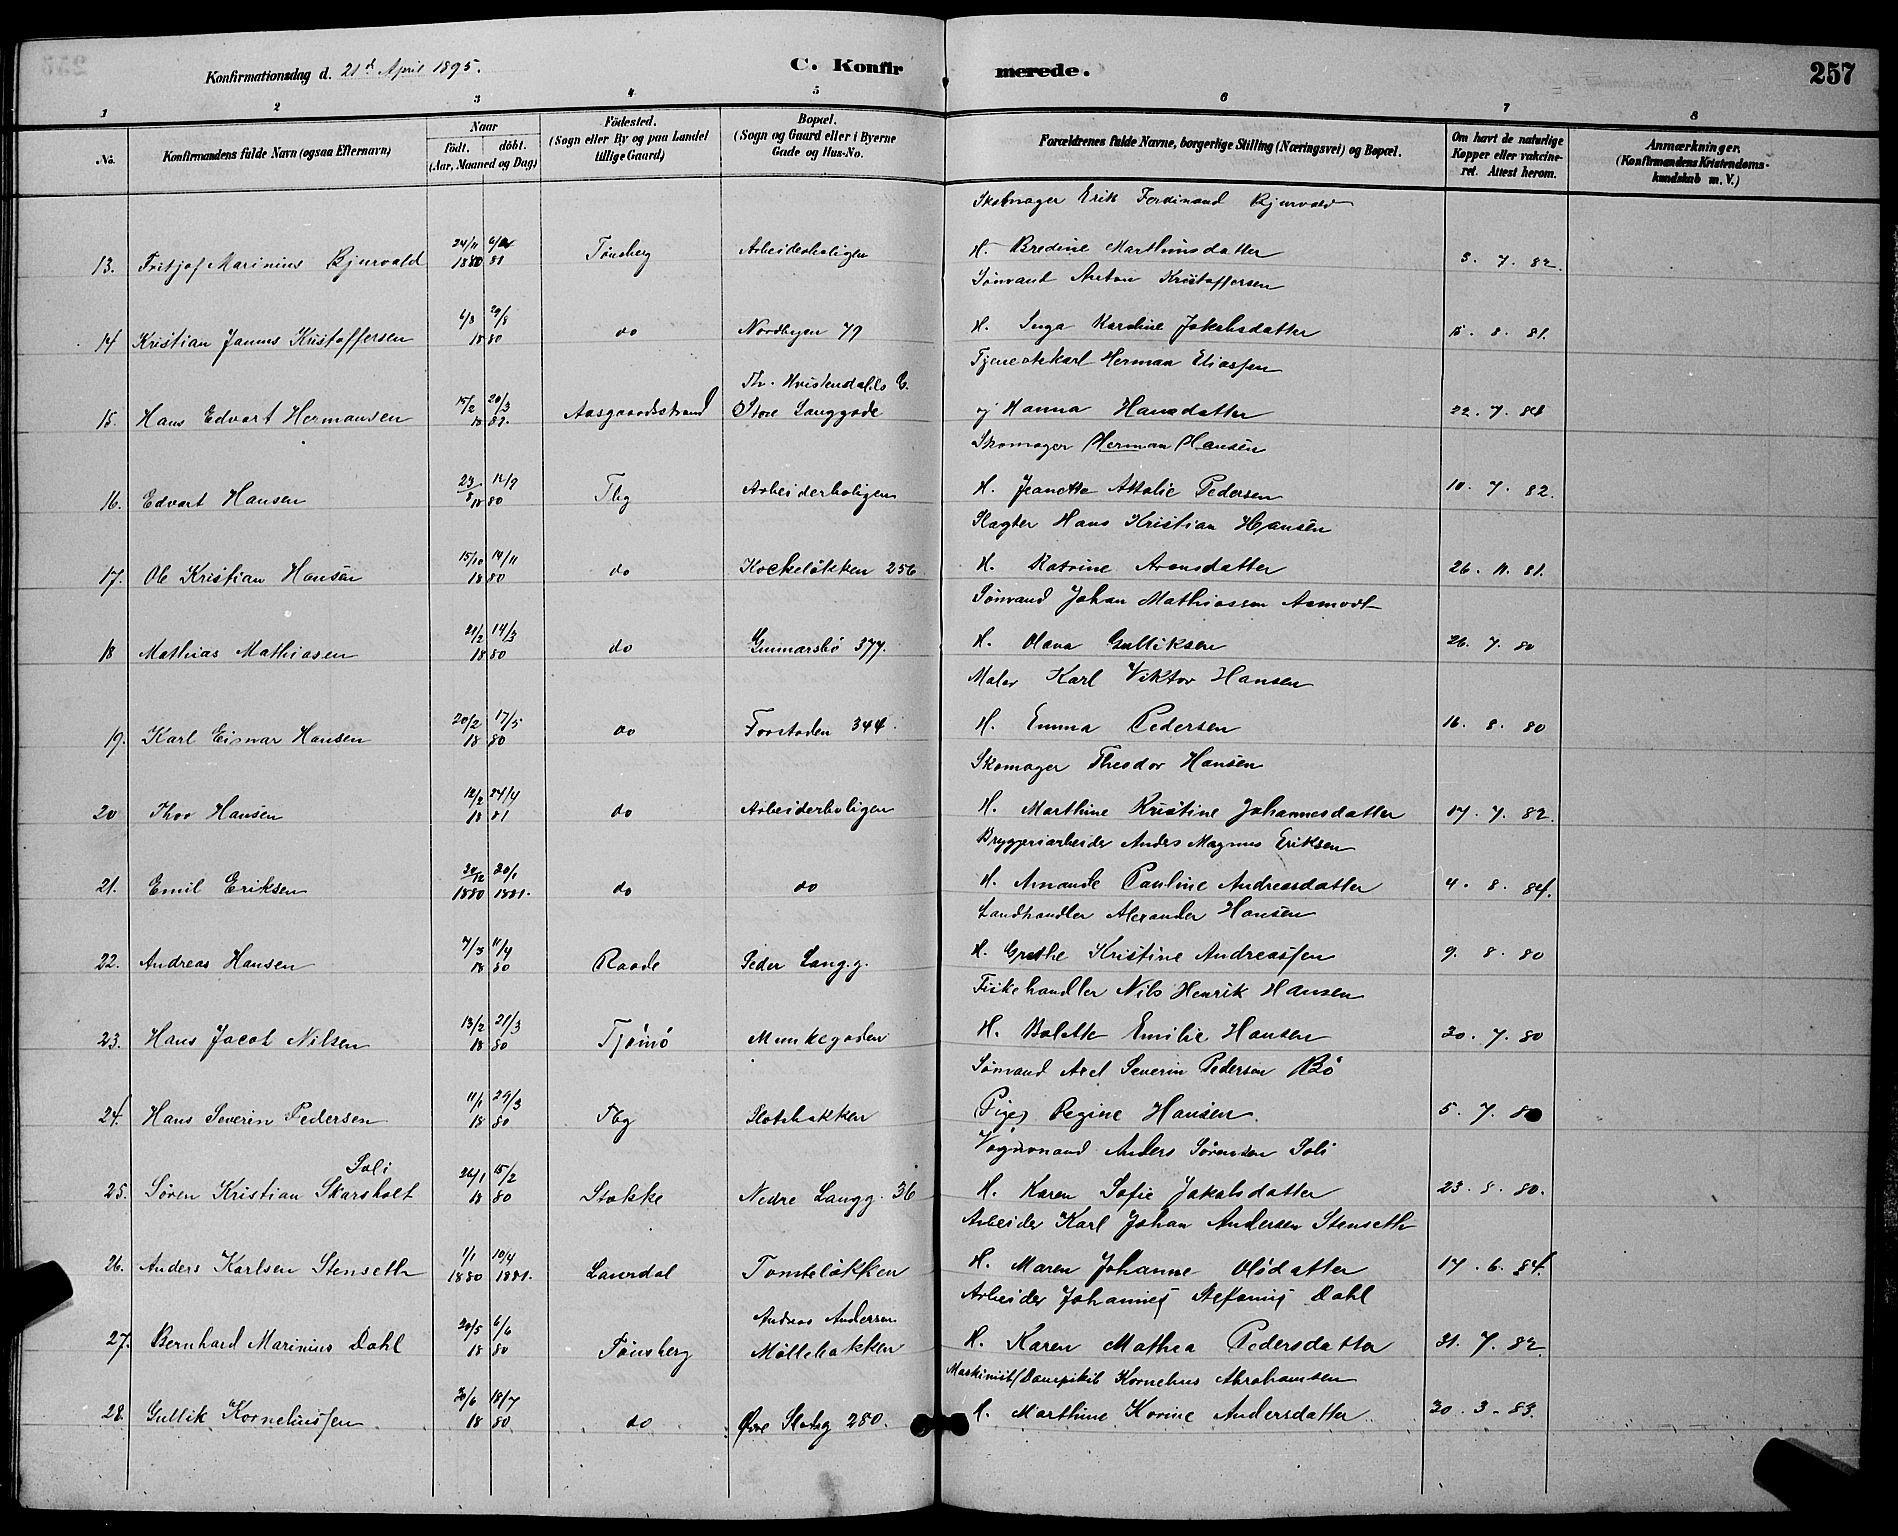 Konfirmationsdag d. 21de April 1895.
C. Konfirmerede.
257
1 2 3 4 5 6 7 8
No.
Konfirmandens fulde Navn (ogsaa Efternavn)
Naar
født. døbt.
(Aar, Maaned og Dag)
Fødested.
(Sogn eller By og paa Landet
tillige Gaard)
Bopæl.
(Sogn og Gaard eller i Byerne
Gade og Hus-No.
Forældrenes fulde Navne, borgerlige Stilling (Næringsvei) og Bopæl.
Om havt de naturlige
Kopper eller vakcine-
ret. Attest herom.
Anmærkninger.
(Konfirmandens Kristendoms-
kundskab m. V.)
Skomager Erik Ferdinand Bjurvald
13. Fritjof Marinius Bjurvald 24/11 1880 81 Tønsberg Arbeiderboligen H. Bredine Marthinsdatter 3. 7. 82.
Sømand Anton Kristoffersen
14 Kristian Janus Kristoffersen 6/3 29/8 18 80 do Nordbyen 79 H. Inga Karoline Jakobsdatter 15. 8. 81.
Tjenestekarl Herman Eliassen
15. Hans Edvart Hermansen 15/2 20/3 18 81. Aasgaardsstrand Store Langgade Hanna Hansdatter 22. 7. 81
Skomager Herman Hansen
16. Edvart Hansen 23/8 12/9 18 80 Tbg Arbeiderboligen H. Jeanette Attalie Pedersen 10. 7. 82.
Slagter Hans Kristian Hansen
17. Ole Kristian Hansen 15/10 14/11 18 80 do Kockeløkken 256 H. Katrine Aronsdatter 26. 11. 81.
Sømand Johan Mathiassen Aamodt
18 Mathias Mathiasen 21/2 14/3 18 80 do Gunnarsbø 377. H. Olava Gulliksen 26. 7. 80
Maler Karl Viktor Hansen
19. Karl Eismar Hansen 20/2 17/5 18 80 do Forstaden 344. H. Emma Pedersen 16. 8. 80
Skomager Theodor Hansen
20 Thor Hansen 12/2 24/4 18 81 do Arbeiderboligen H. Marthine Kristine Johannesdatter 17. 7. 82.
Bryggeriarbeider Anders Magnus Eriksen
21. Emil Eriksen 20/1 1880 1881. do do H. Amande Pauline Andreasdatter 4. 8. 84.
Landhandler Alexander Hansen
22. Andreas Hansen 7/3 11/4 18 80 Raade Peder Lang.g. H. Grethe Kristine Andreassen 9. 8. 80
Fiskehandler Nils Henrik Hansen
23. Hans Jacob Nilsen 13/2 21/3 18 80 Tjømø Munkegaden H. Bolette Emilie Hansen 30. 7. 80
Sømand Axel Severin Pedersen Bø
24. Hans Severin Pedersen 11/1 29/3 18 80 Tbg Slotsbakken Pige Regine Hansen 5. 7. 80
Vognmand Anders Sørensen Soli
Soli
25. Søren Kristian Skarsholt 26/1 15/2 18 80 Stokke Nedre Langg. 36 H. Karen Sofie Jakobsdatter 23. 8. 80.
Arbeider Karl Johan Andersen Stenseth
26. Anders Karlsen Stenseth 1/1 10/4 1880 1881. Laurdal Tomteløkken H. Maren Johanne Olsdatter 17. 6. 84.
Arbeider Johannes Stefanus Dahl
Andreas Andersen
27. Bernhard Marinius Dahl 20/5 6/6 18 80 Tønsberg Møllebakken H. Karen Mathea Pedersdatter 31. 7. 82.
Maskinist/Dampskib Kornelius Abrahamsen
28. Gullik Korneliussen 30/6 18/7 18 80 do Øvre Slotsg 280. H. Marthine Korine Andersdatter 30. 3. 83.